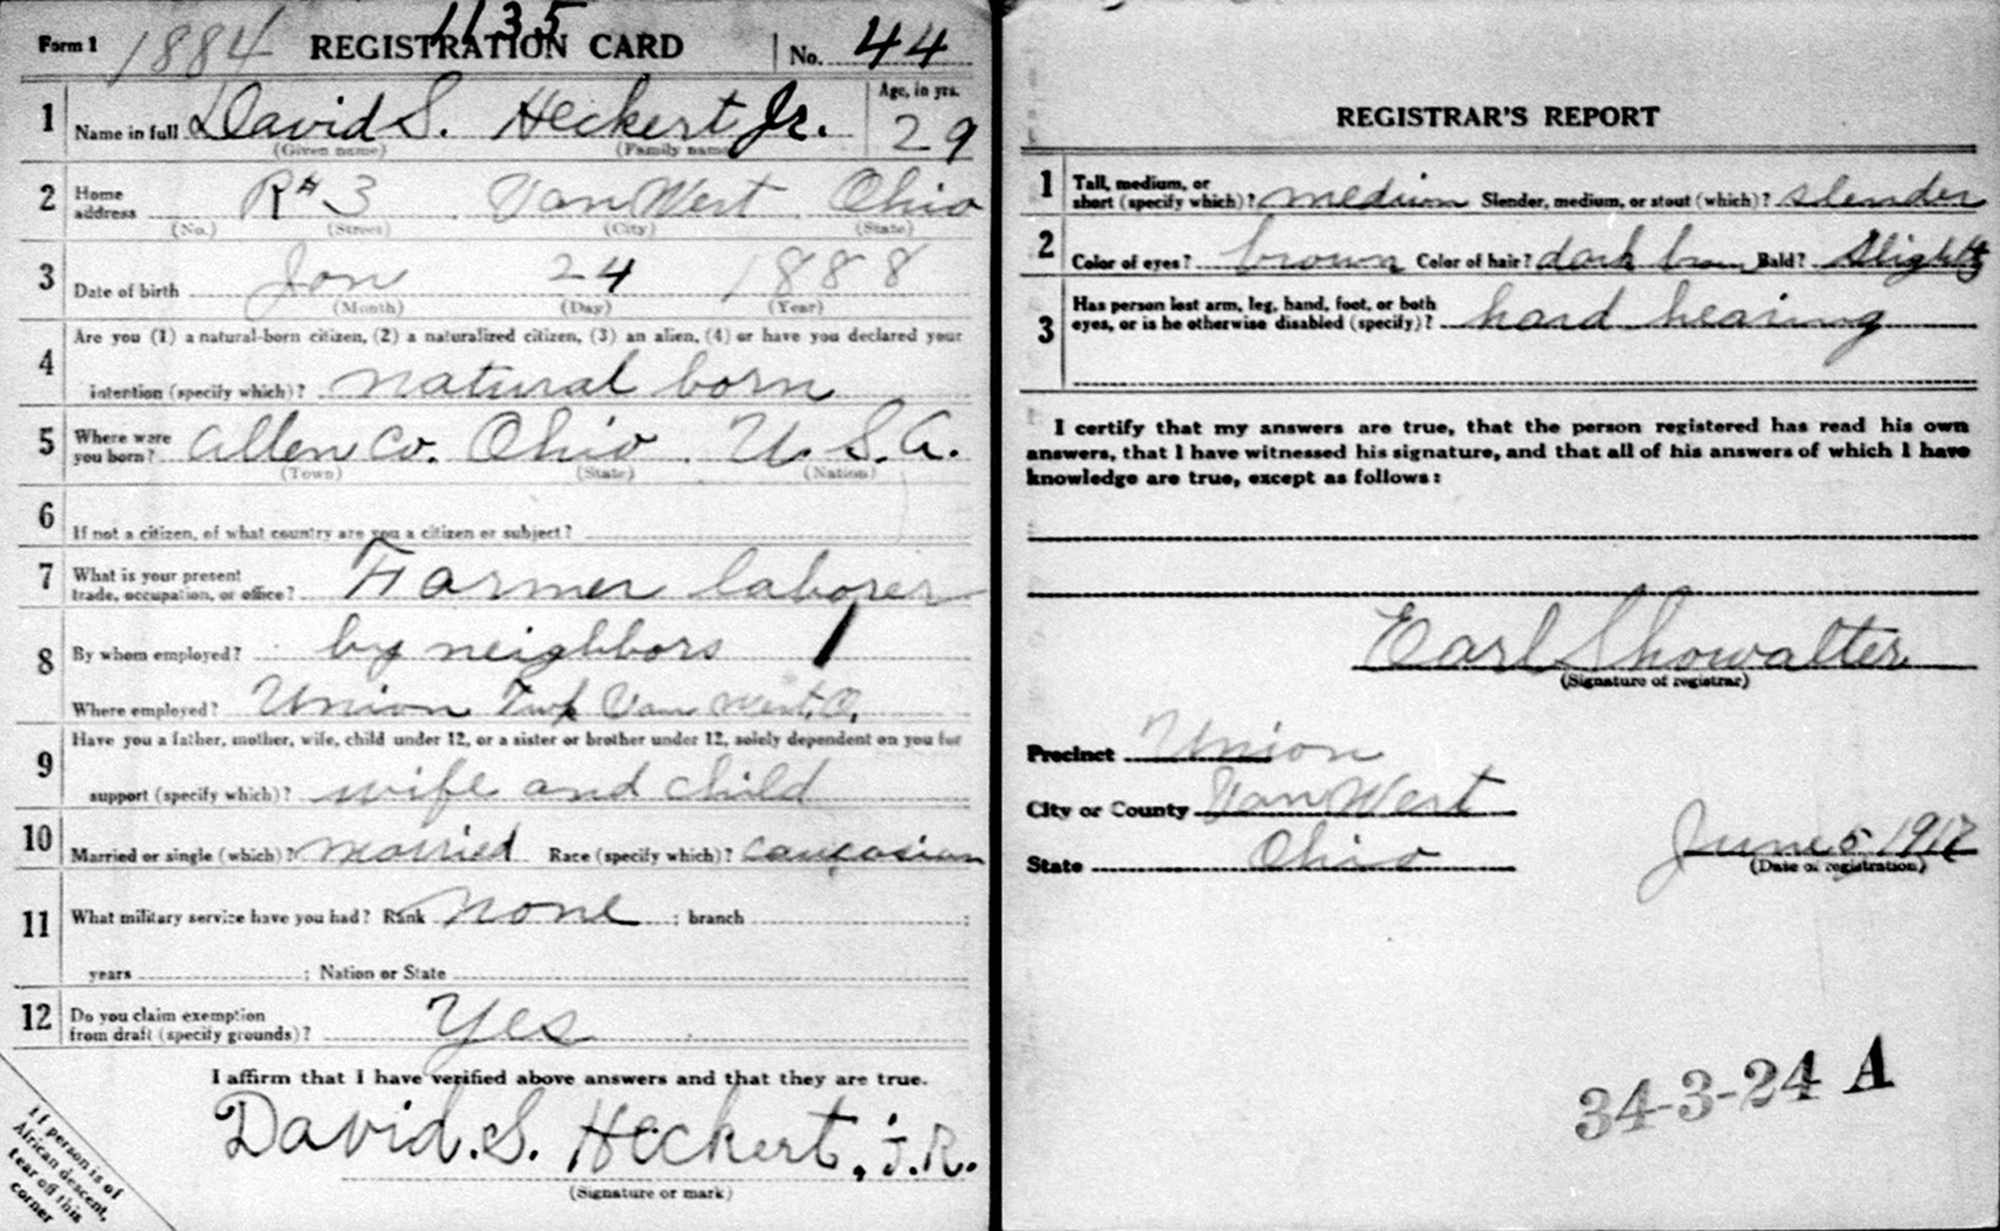 1135
Form 1 1884 REGISTRATION CARD No. 44
1 Name in full David S. Heckert Jr. Age, in yrs. 29
(Given name) (Family name)
2 Home address R# 3 Van Wert Ohio
(No.) (Street) (City) (State)
3 Date of birth Jan 24 1888
(Month) (Day) (Year)
4 Are you (1) a natural-born citizen, (2) a naturalized citizen, (3) an alien, (4) or have you declared your
intention (specify which)? natural born
5 Where were you born? Allen Co. Ohio. U.S.A.
(Town) (State) (Nation)
6 If not a citizen, of what country are you a citizen or subject?
7 What is your present trade, occupation, or office? Farmer laborer
8 By whom employed? by neighbors
Where employed? Union Twp Van Wert, O.
9 Have you a father, mother, wife, child under 12, or a sister or brother under 12, solely dependent on you for
support (specify which)? wife and child
10 Married or single (which)? married Race (specify which)? caucasian
11 What military service have you had? Rank none ; branch ;
years ; Nation or State
12 Do you claim exemption from draft (specify grounds)? Yes
I affirm that I have verified above answers and that they are true.
David. S. Heckert, J.R.
(Signature or mark)
If person is of
African descent,
tear off this
corner
REGISTRAR'S REPORT
1 Tall, medium, or short (specify which)? medium Slender, medium, or stout (which)? slender
2 Color of eyes? brown Color of hair? dark brown Bald? slightly
3 Has person lost arm, leg, hand, foot, or both
eyes, or is he otherwise disabled (specify)? hard hearing
I certify that my answers are true, that the person registered has read his own
answers, that I have witnessed his signature, and that all of his answers of which I have
knowledge are true, except as follows:
Earl Showalter
(Signature of registrar)
Precinct Union
City or County Van Wert
State Ohio June 5 1917
(Date of registration)
34-3-24 A